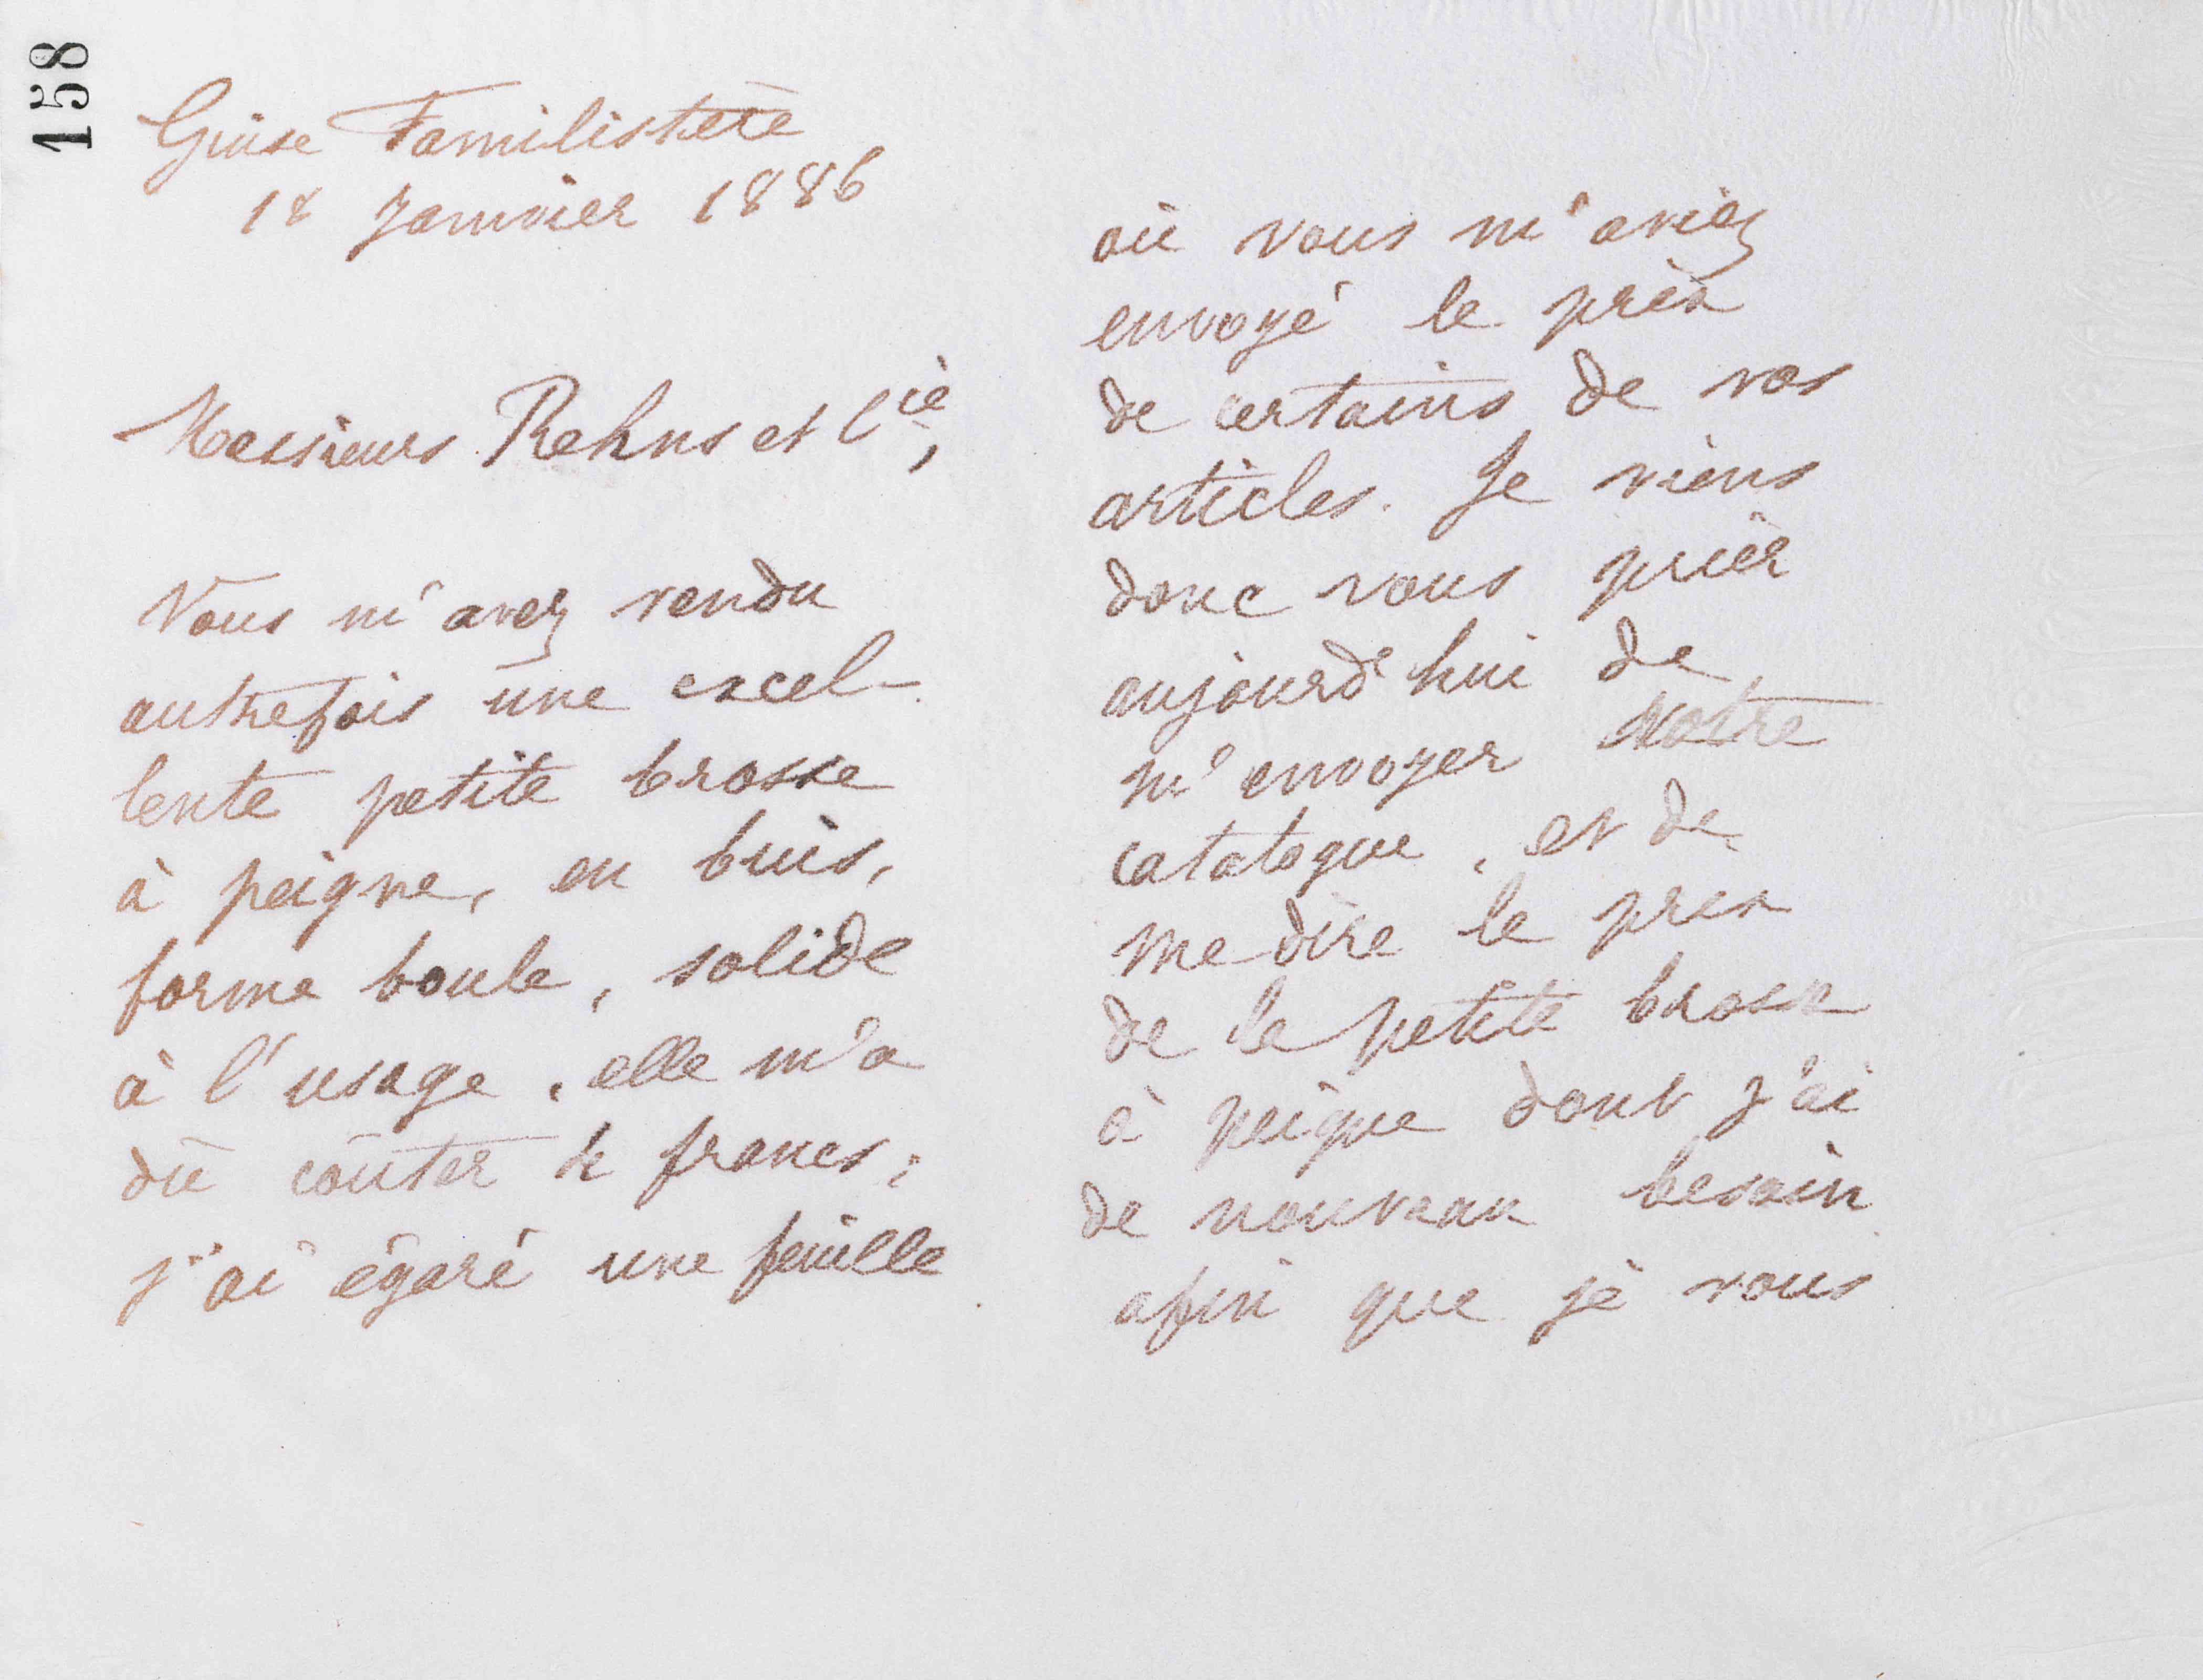 158
Guise Familistère
18 Janvier 1886
Messieurs Rehns et Cie,
Vous m'avez vendu
autrefois une excel-
lente petite brosse
à peigne, en buis,
forme boule, solide
à l'usage, elle m'a
dû coûter francs;
j'ai égaré une feuille
où vous m'aviez
envoyé le prix
de certains de vos
articles. Je viens
donc vous prier
aujourd'hui de
m'envoyer votre
catalogue, et de
me dire le prix
de la petite brosse
à peigne dont j'ai
de nouveau besoin
afin que je vous